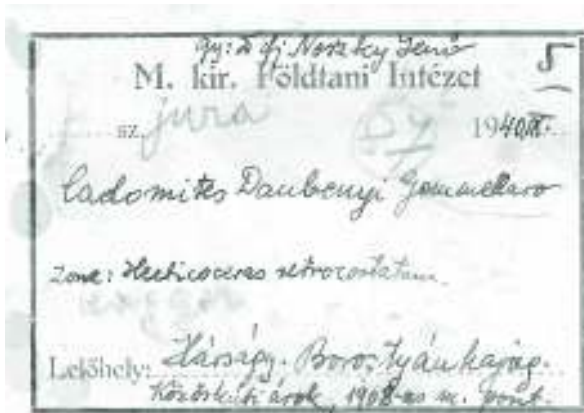 gy: Dr ifj Noszky Jenő
5
M. kir. Földtani Intézet
sz. jura 1940.IX.
Cadomites Daubenyi Gemmellaro
Zone: Hecticoceras retrocostatum
Lelőhely: Hárságy. Borostyánhajag.
Közöskúti árok, 1908-as m. pont.